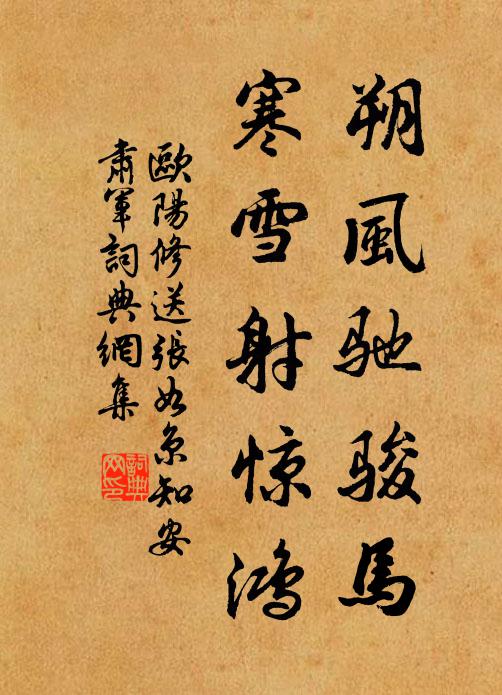 朔風驰骏馬
寒雪射惊鸿
歐陽修送張如京知安
肅軍詞典網集
詞典网印